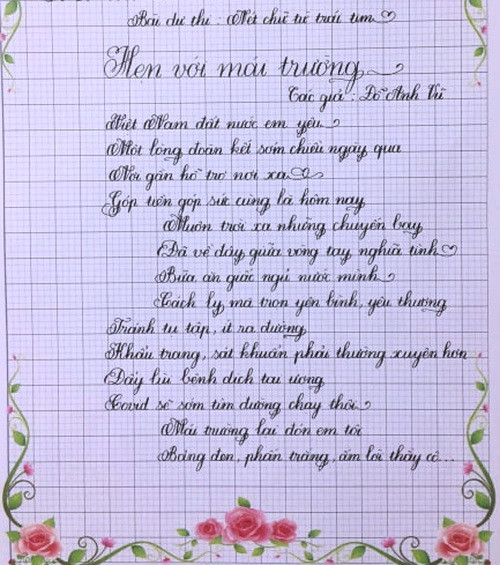 Bài dự thi : Nét chữ từ trái tim
Hẹn với mái trường
Tác giả : Đỗ Anh Vũ
Việt Nam đất nước em yêu
Một lòng đoàn kết sớm chiều ngày qua
Nơi gần hỗ trợ nơi xa
Góp tiền góp sức cùng là hôm nay
Muôn trời xa những chuyến bay
Đã về đây giữa vòng tay nghĩa tình
Bữa ăn giấc ngủ nước mình
Cách ly mà trọn yên bình, yêu thương
Tránh tụ tập, ít ra đường
Khẩu trang, sát khuẩn phải thường xuyên hơn
Đẩy lùi bệnh dịch tai ương
Covid sẽ sớm tìm đường chạy thôi
Mái trường lại đón em tới
Bảng đen, phấn trắng, ấm lời thầy cô...